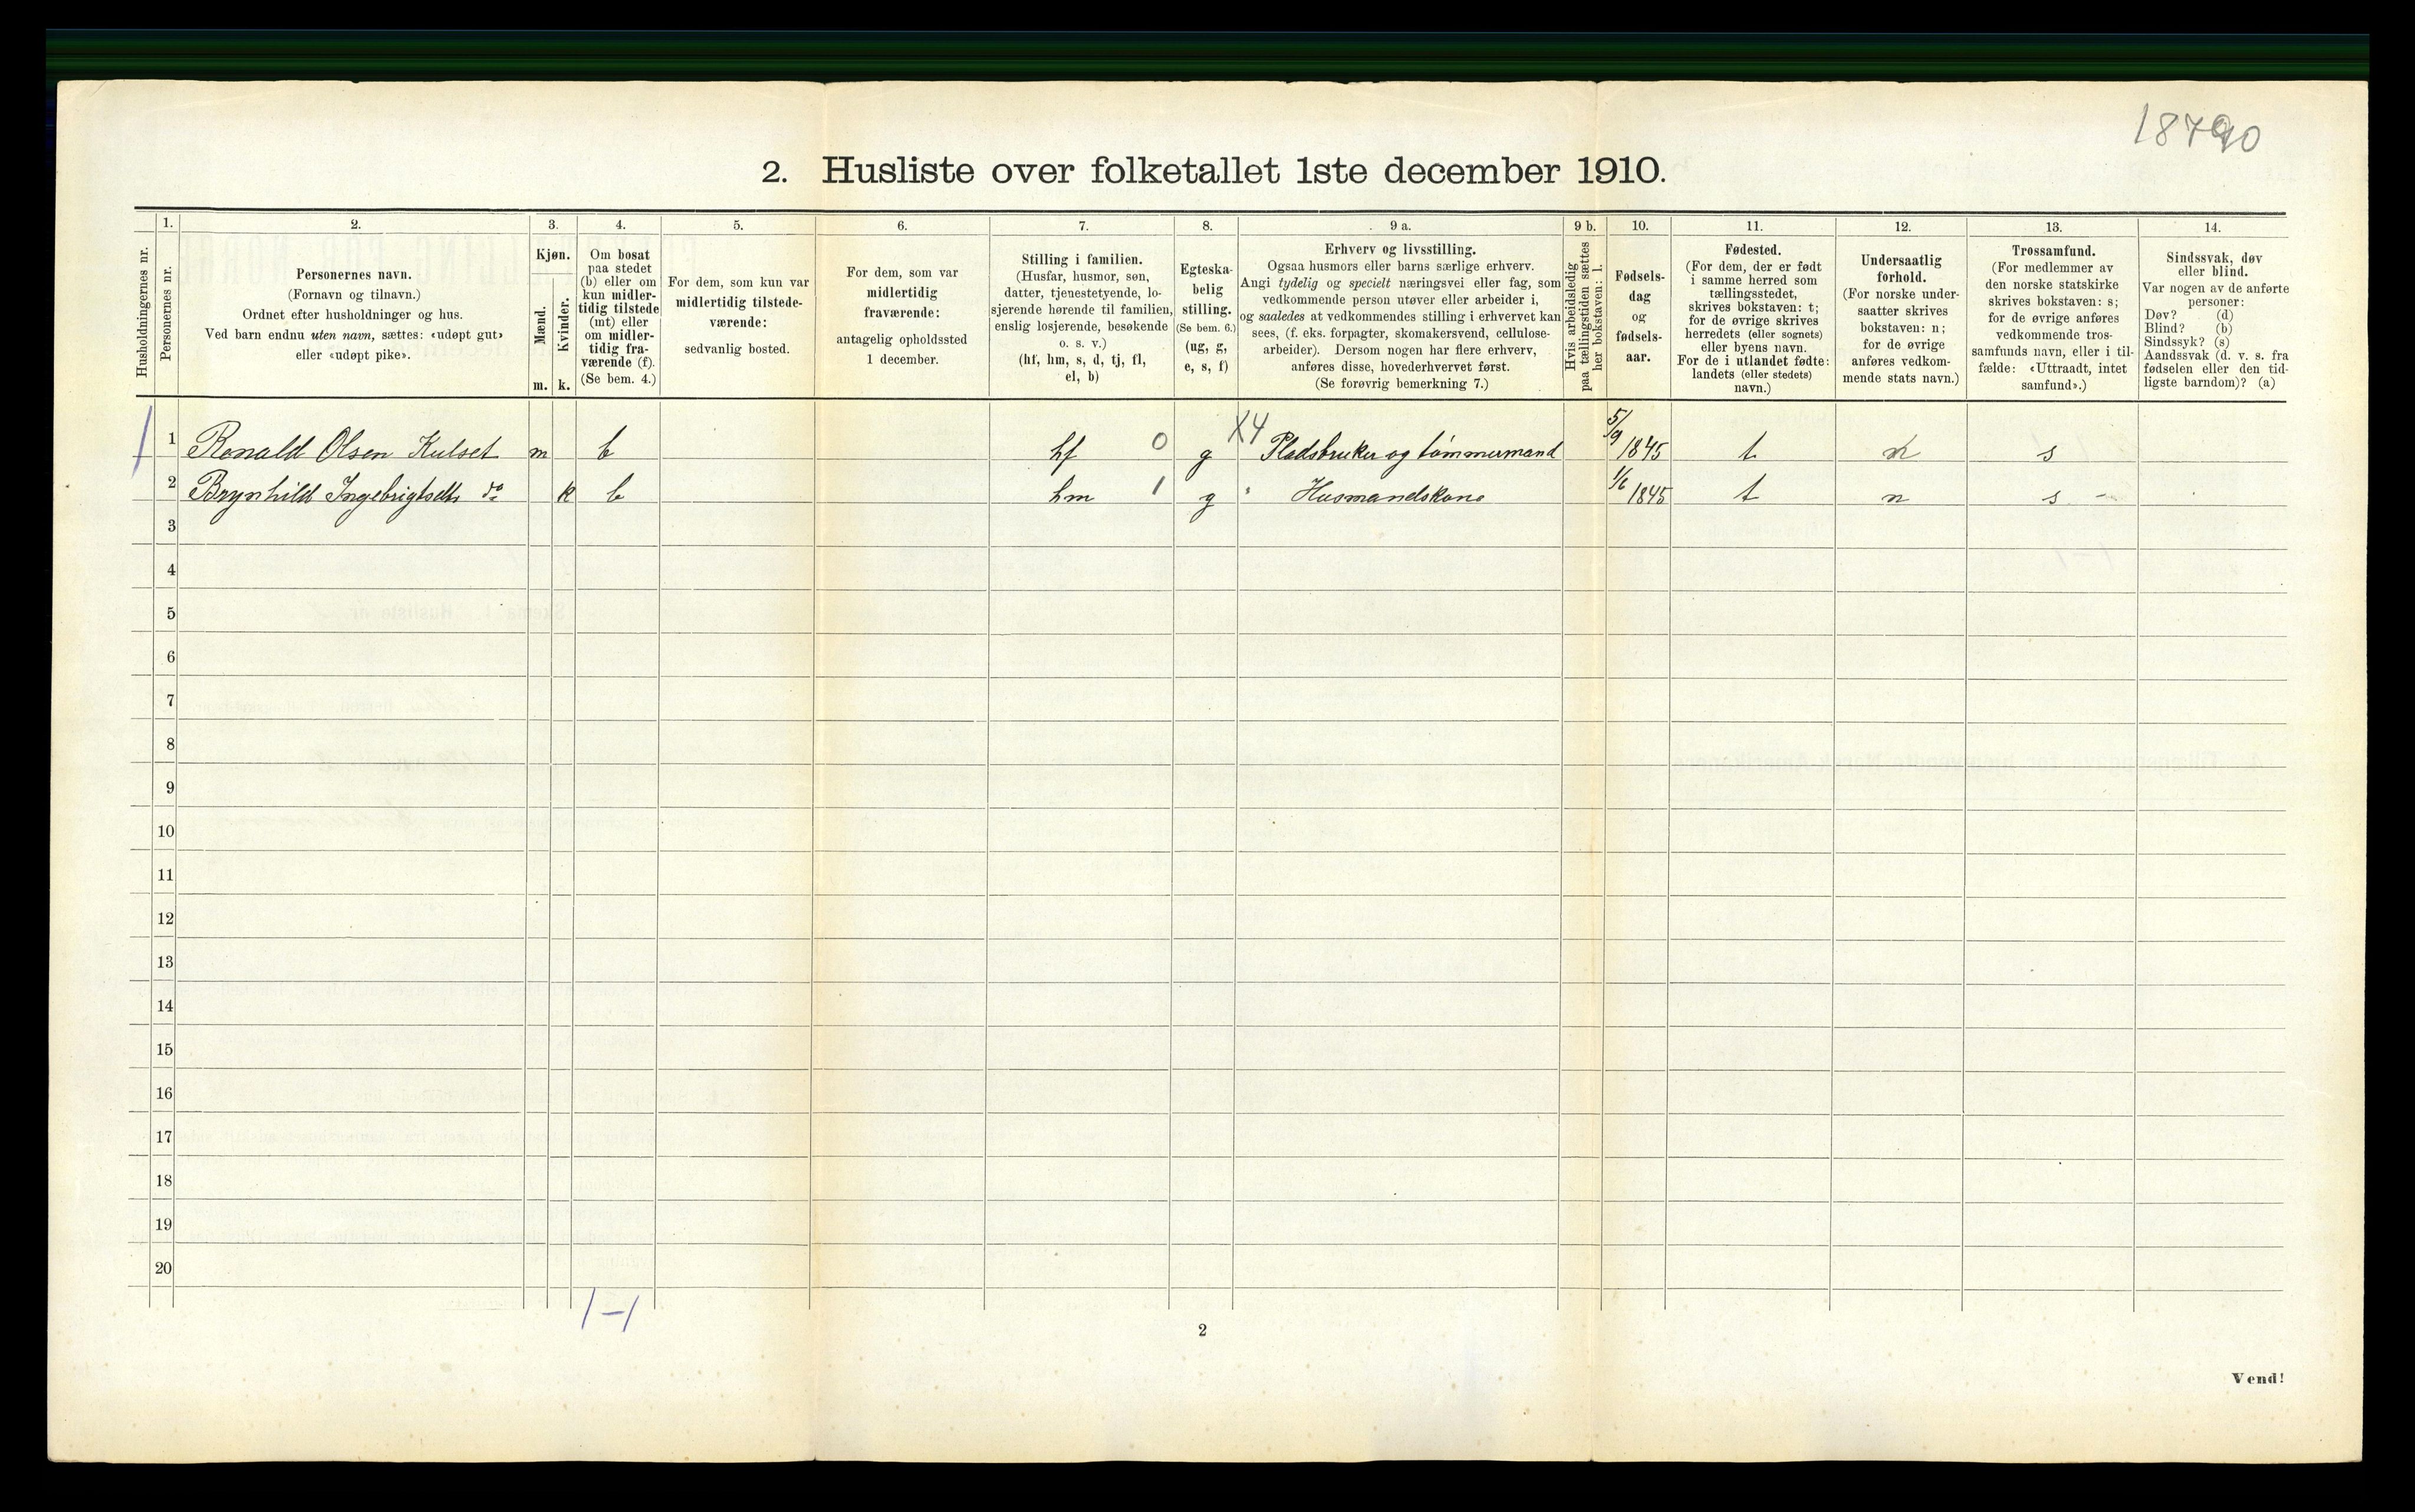 18790
2. Husliste over folketallet 1ste december 1910.
Husholdningernes nr.
1.
Personernes nr.
2.
Personernes navn.
(Fornavn og tilnavn.)
Ordnet efter husholdninger og hus.
Ved barn endnu uten navn, sættes: «udøpt gut»
eller «udøpt pike».
3.
Kjøn.
Mænd.
Kvinder.
m. k.
4.
Om bosat
paa stedet
(b) eller om
kun midler-
tidig tilstede
(mt) eller
om midler-
tidig fra-
værende (f).
(Se bem. 4.)
5.
For dem, som kun var
midlertidig tilstede-
værende:
sedvanlig bosted.
6.
For dem, som var
midlertidig
fraværende:
antagelig opholdssted
1 december.
7.
Stilling i familien.
(Husfar, husmor, søn,
datter, tjenestetyende, lo-
sjerende hørende til familien,
enslig losjerende, besøkende
o. s. v.)
(hf, hm, s, d, tj, fl,
el, b)
8.
Egteska-
belig
stilling.
(Se bem. 6.)
(ug, g,
e, s, f)
9 a.
Erhverv og livsstilling.
Ogsaa husmors eller barns særlige erhverv.
Angi tydelig og specielt næringsvei eller fag, som
vedkommende person utøver eller arbeider i,
og saaledes at vedkommendes stilling i erhvervet kan
sees, (f. eks. forpagter, skomakersvend, cellulose-
arbeider). Dersom nogen har flere erhverv,
anføres disse, hovederhvervet først.
(Se forøvrig bemerkning 7.)
9 b.
Hvis arbeidsledig
paa tællingstiden sættes
her bokstaven: l.
10.
Fødsels-
dag
og
fødsels-
aar.
11.
Fødested.
(For dem, der er født
i samme herred som
tællingsstedet,
skrives bokstaven: t;
for de øvrige skrives
herredets (eller sognets)
eller byens navn.
For de i utlandet fødte:
landets (eller stedets)
navn.)
12.
Undersaatlig
forhold.
(For norske under-
saatter skrives
bokstaven: n;
for de øvrige
anføres vedkom-
mende stats navn.)
13.
Trossamfund.
(For medlemmer av
den norske statskirke
skrives bokstaven: s;
for de øvrige anføres
vedkommende tros-
samfunds navn, eller i til-
fælde: «Uttraadt, intet
samfund».)
14.
Sindssvak, døv
eller blind.
Var nogen av de anførte
personer:
Døv? (d)
Blind? (b)
Sindssyk? (s)
Aandssvak (d. v. s. fra
fødselen eller den tid-
ligste barndom)? (a)
1 1 Ronald Olsen Kulset m b hf 0 g X4 Pladsbruker og tømmermand 5/9 1845 t n s
2 Brynhild Ingebrigtsdtr do k b hm 1 g " Husmandskone 1/6 1845 t n s -
3
4
5
6
7
8
9
10
11
12
13
14
15
16
17
18
19
20
1-1
2
Vend!